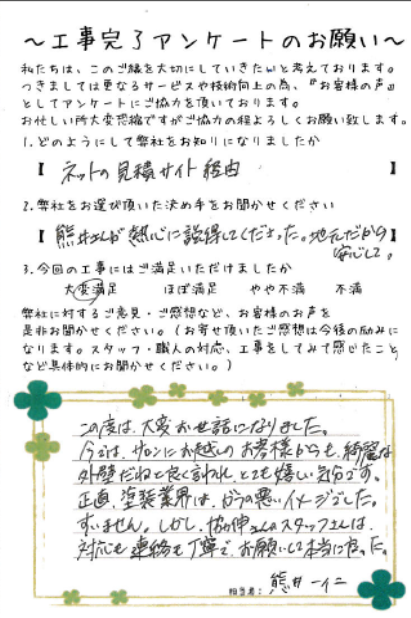 ～工事完了アンケートのお願い～
私たちは、このご縁を大切にしていきたいと考えております。
つきましては更なるサービスや技術向上の為、『お客様の声』
としてアンケートにご協力を頂いております。
お忙しい所大変恐縮ですがご協力の程よろしくお願い致します。
1.どのようにして弊社をお知りになりましたか
【 ネットの見積サイト経由 】
2.弊社をお選び頂いた決め手をお聞かせください
【 熊井さんが熱心に説得してくださった。地元だから 】
安心して。
3.今回の工事にはご満足いただけましたか
大変満足 ほぼ満足 やや不満 不満
弊社に対するご意見・ご感想など、お客様のお声を
是非お聞かせください。(お寄せ頂いたご感想は今後の励みに
なります。スタッフ・職人の対応、工事をしてみて感じたこと
など具体的にお聞かせください。)
この度は、大変お世話になりました。
今では、サロンにお越しのお客様からも、綺麗な
外壁だねと良く言われ、とても嬉しい気分です。
正直、塗装業界は、ガラの悪いイメージでした。
すいません。しかし、協伸さんのスタッフさんは、
対応も連絡も丁寧で、お願いして本当に良かった。
担当者: 熊井一仁